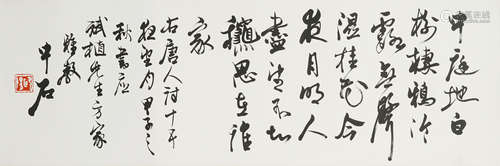 中庭地白
樹棲鴉冷
露無聲
濕桂花今
夜月明人
盡望不知
龝思在誰
家
右唐人詩十五
夜望月甲子之
秋書應
斌植先生方家
雅教
中石